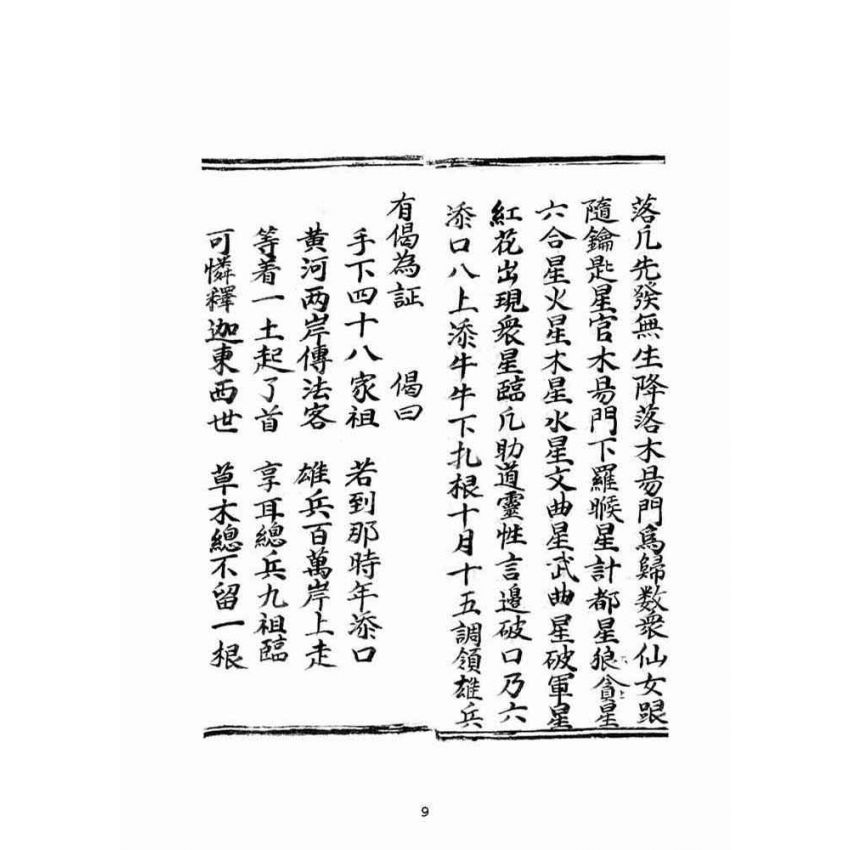 落凡先發無生降落木易門為歸数衆仙女跟
隨鑰匙星官木易門下羅睺星計都星狼貪星
六合星火星木星水星文曲星武曲星破軍星
紅花出現衆星臨凡助道靈性言邊破口乃六
添口八上添牛牛下扎根十月十五調領雄兵
有偈為証 偈曰
手下四十八家祖 若到那時年添口
黄河两岸傳法客 雄兵百萬岸上走
等着一土起了首 享耳總兵九祖臨
可憐釋迦東西世 草木總不留一根
9